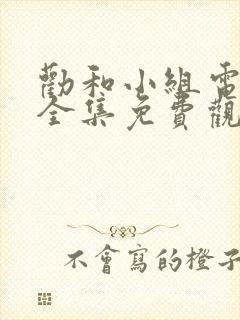 勸和小組電
全集免費觀
不會寫的橙子